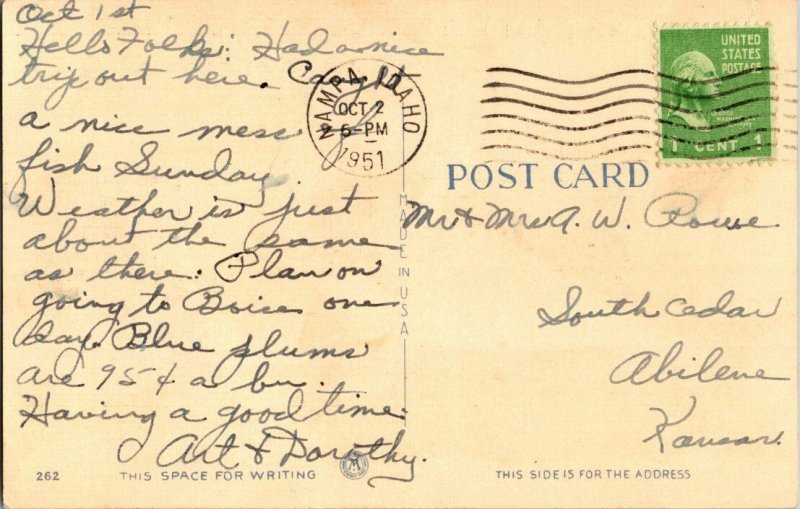 Oct 1st
Hello Folks: Had a nice
trip out here. Caught
a nice mess of
fish Sunday.
Weather is just
about the same
as there. Plan on
going to Boise one
day. Blue plums
are 95¢ a bu.
Having a good time.
Art & Dorothy.
262
THIS SPACE FOR WRITING
NAMPA, IDAHO
OCT 2
6-PM
1951
UNITED
STATES
POSTAGE
1 CENT 1
POST CARD
MADE IN USA
Mr & Mrs A. W. Rowe
South Cedar
Abilene
Kansas.
THIS SIDE IS FOR THE ADDRESS